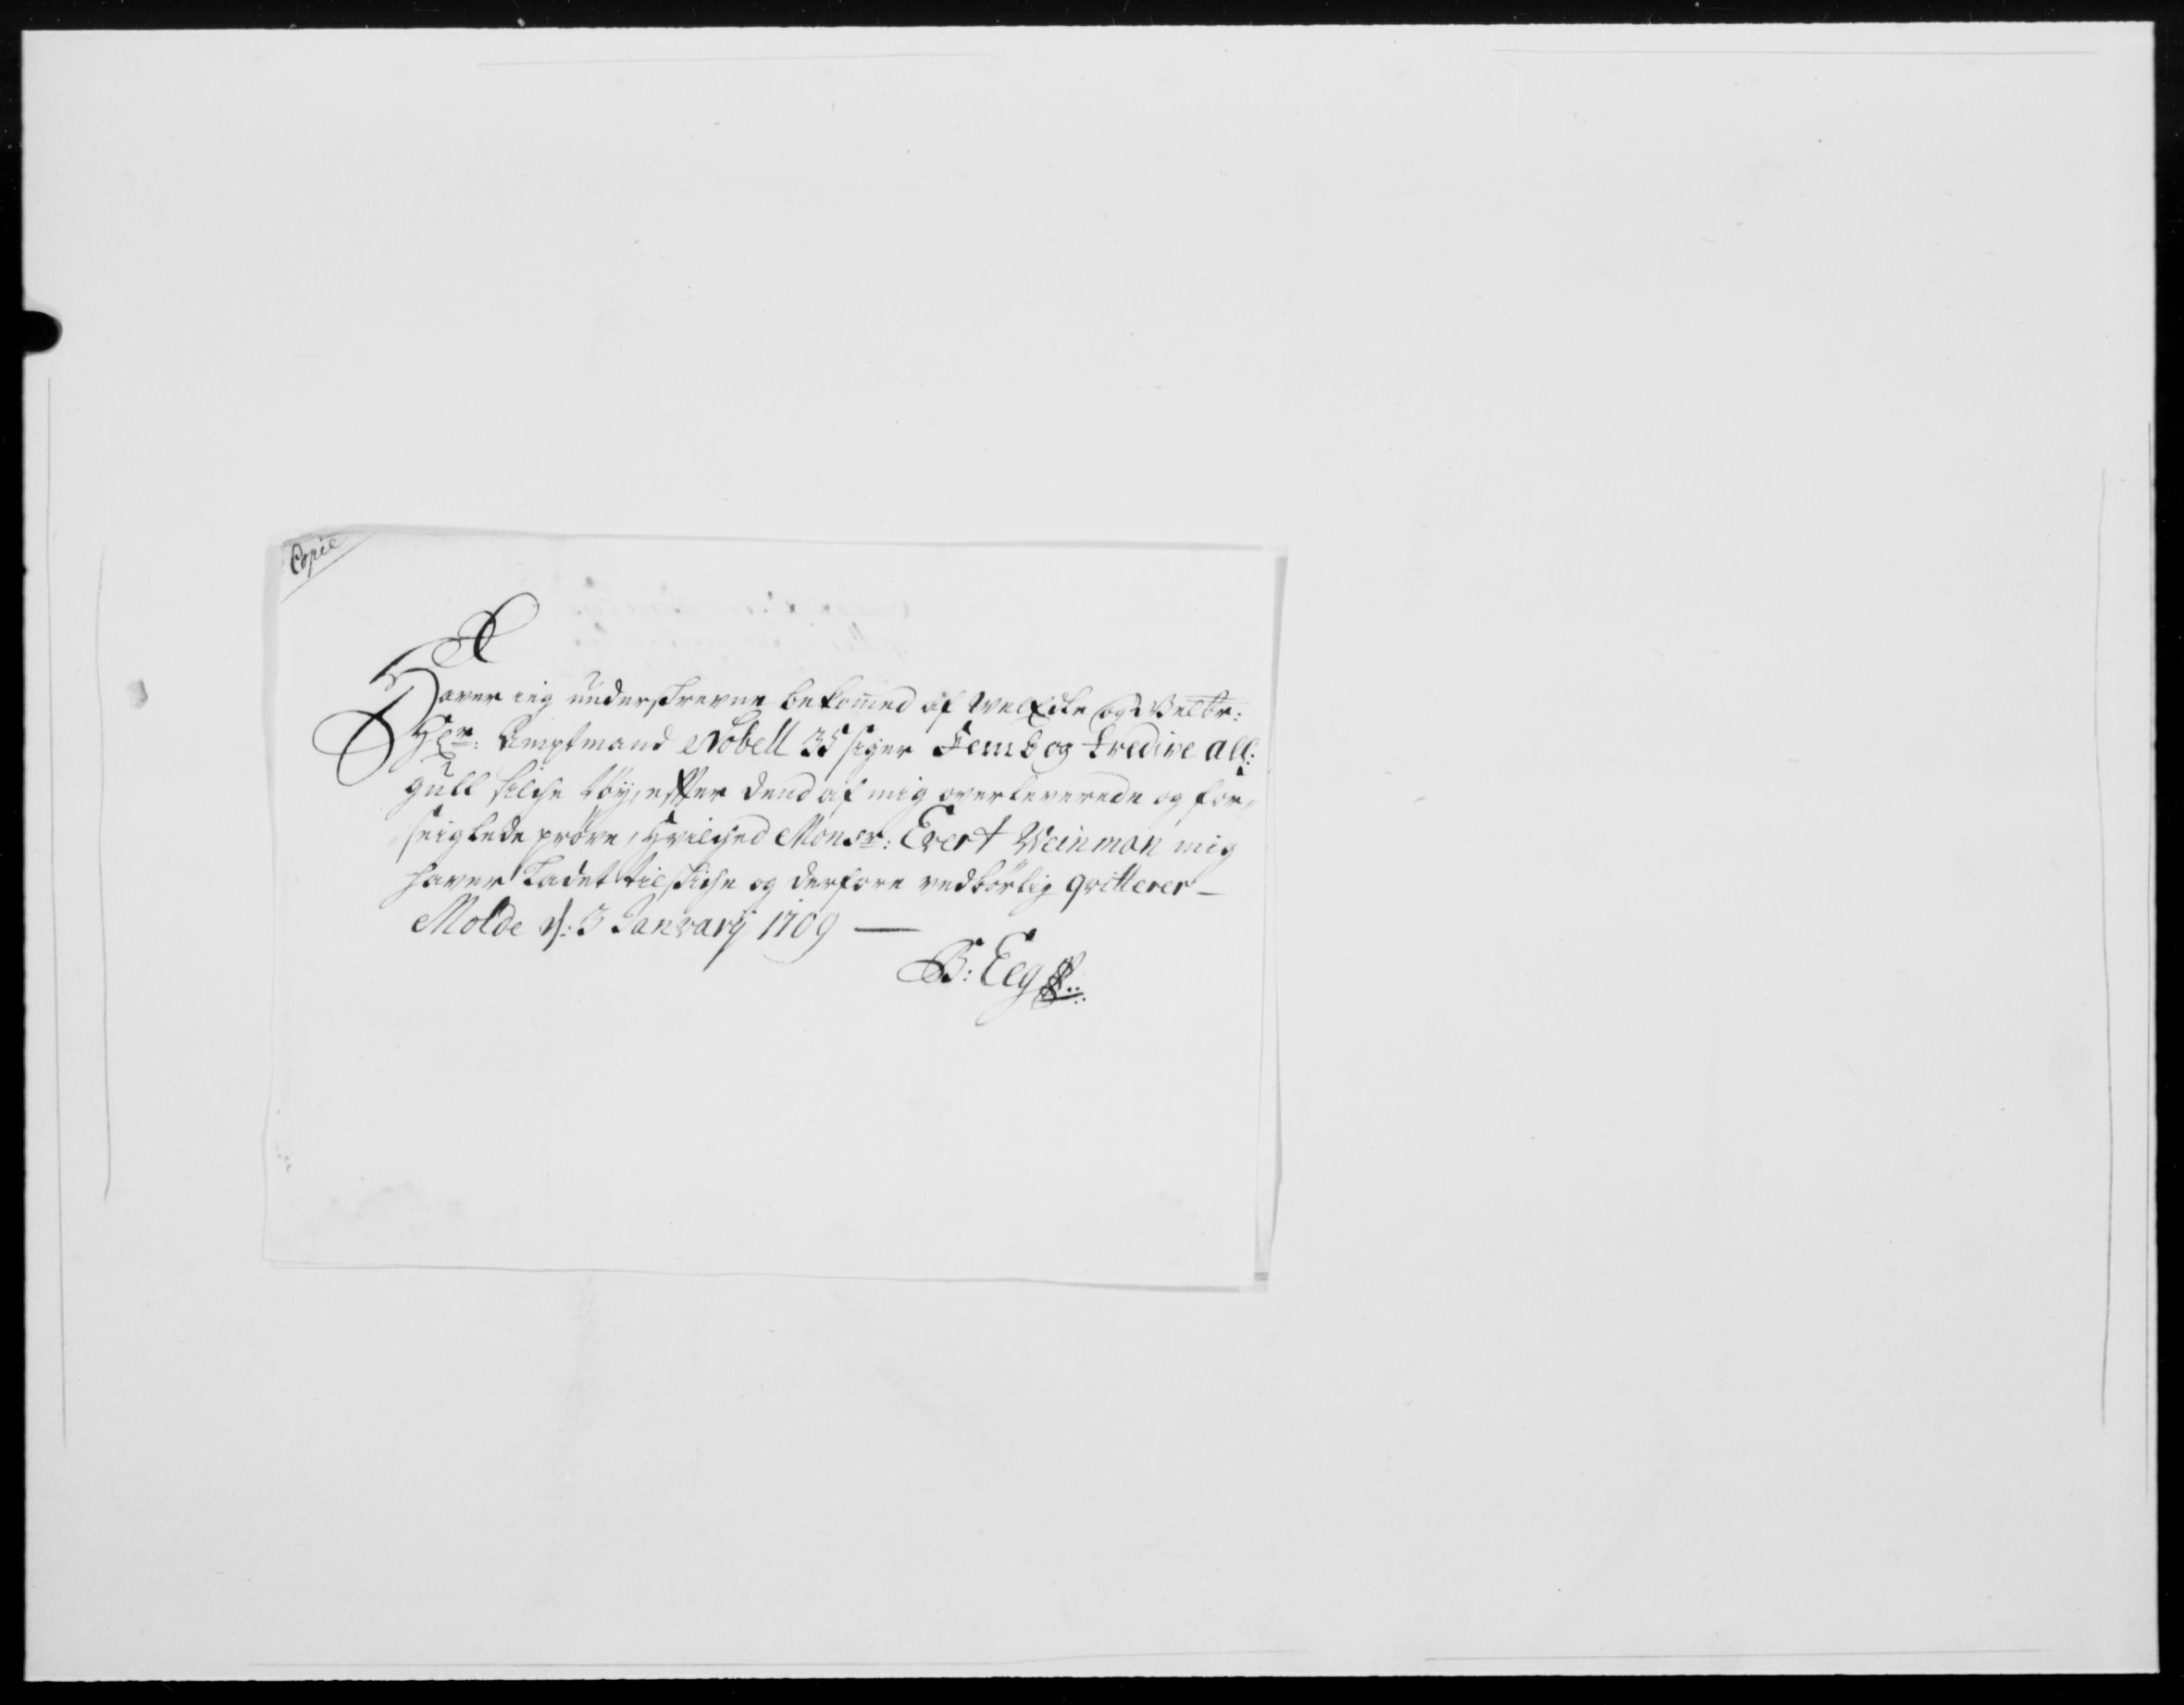 Copie
Haver ieg underskrevne bekommed af WelEdle og Welbr:
Hr: Amptmand Nobell 35 siger Femb og Tredive all:
gull silche tøy, effter dend af mig overleverede og for-
seiglede prøve, hvilched Monsr: Evert Weinman mig
haver Ladet tilskiche og derfore vedbørlig qvitterer -
Molde d: 3 January 1709 —
B: Eeg